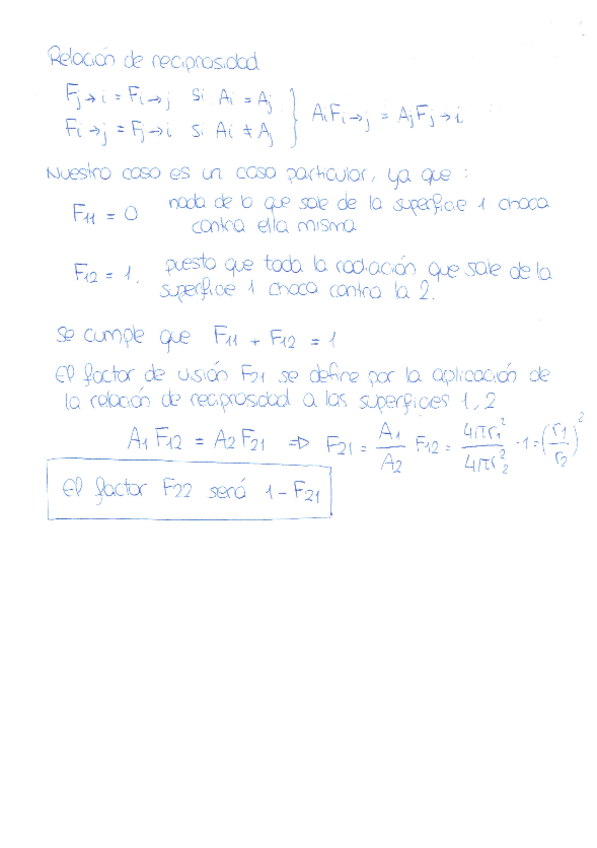 Relación de reciprosidad
Fj→i = Fi→j si Ai = Aj
Fi→j = Fj→i si Ai ≠ Aj } AiFi→j = AjFj→i
Nuestro caso es un caso particular, ya que :
F11 = 0 nada de lo que sale de la superficie 1 choca
contra ella misma
F12 = 1, puesto que toda la radiación que sale de la
superficie 1 choca contra la 2.
se cumple que F11 + F12 = 1
El factor de visión F21 se define por la aplicación de
la relación de reciprosidad a las superficies 1, 2
A1 F12 = A2 F21 ⇒ F21 = A1/A2 F12 = 4πr1²/4πr2² · 1 = (r1/r2)²
El factor F22 será 1 - F21